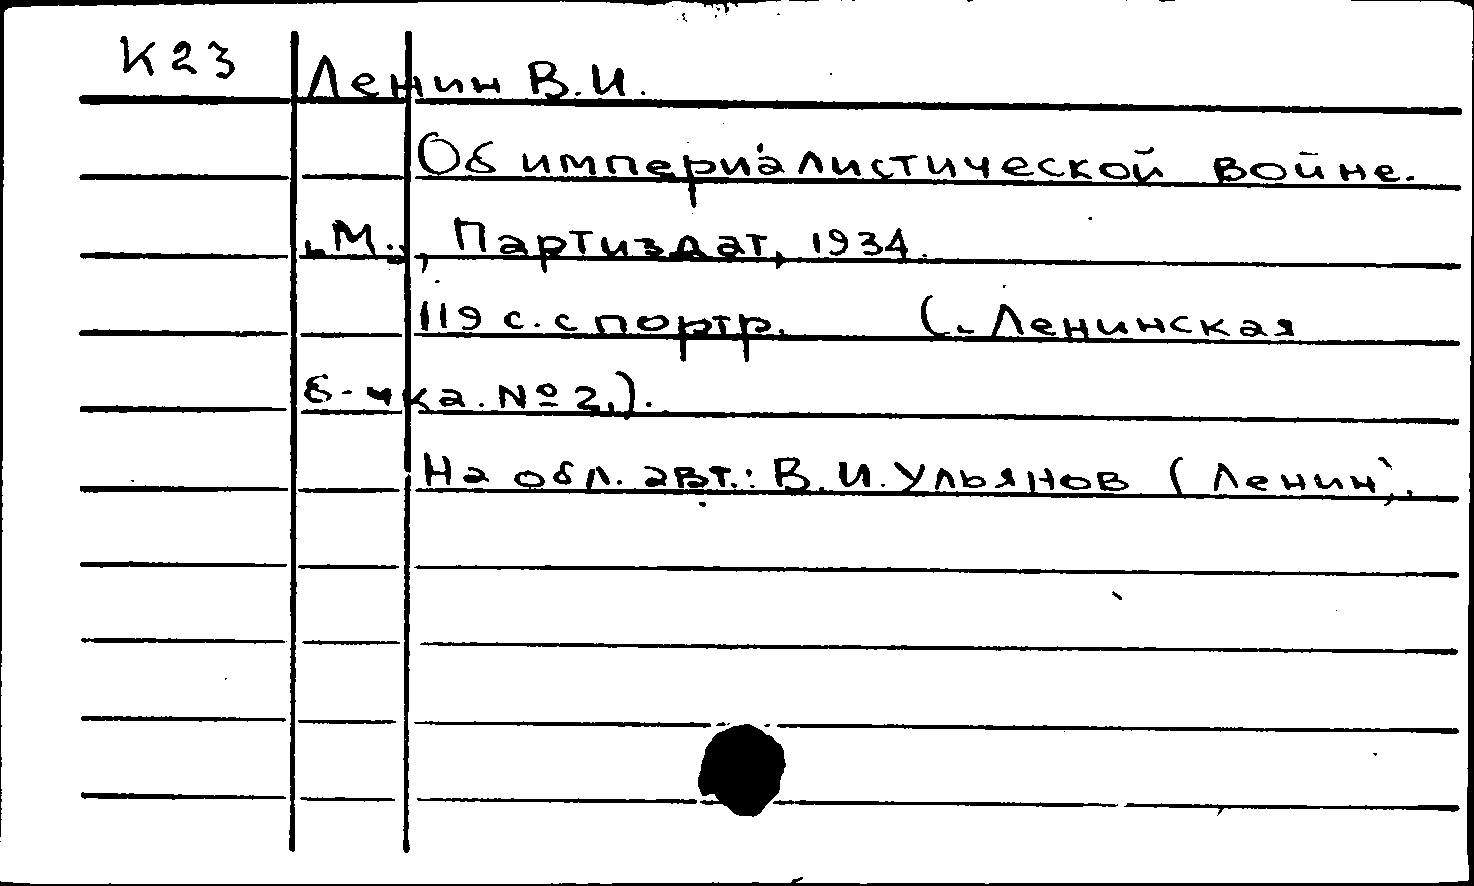 К23
Ленин В.И.
Об империалистической войне.
„М.", Партиздат, 1934.
119 с. с портр. (. Ленинская
б-чка. № 2.).
На обл. авт.: В.И. Ульянов (Ленин).